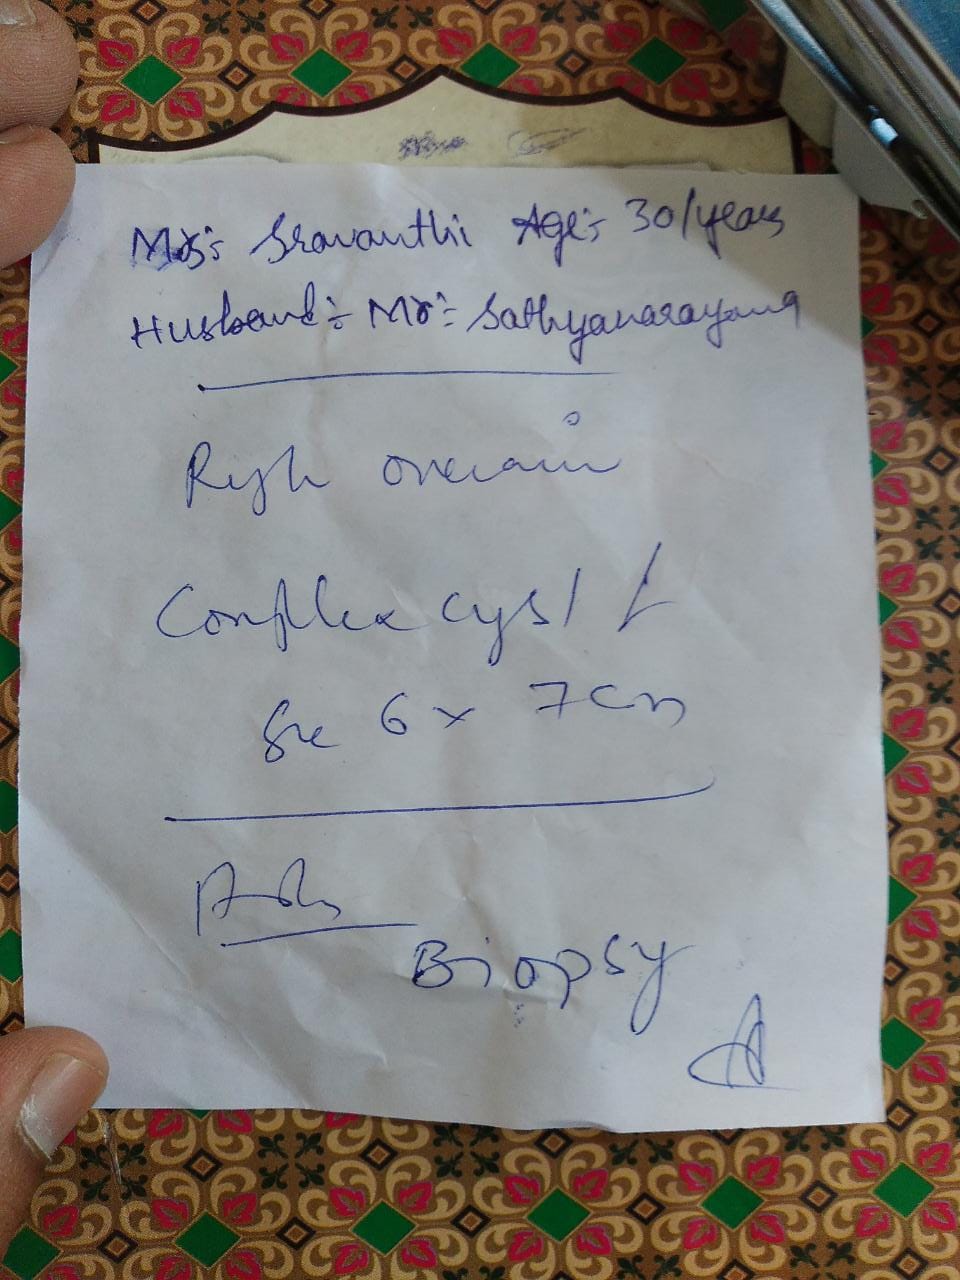 Mrs:- Sravanthi Age:- 30/years
Husband:- Mr:- Sathyanarayana
Right ovarian
Complex cyst
Size 6 x 7cm
Biopsy